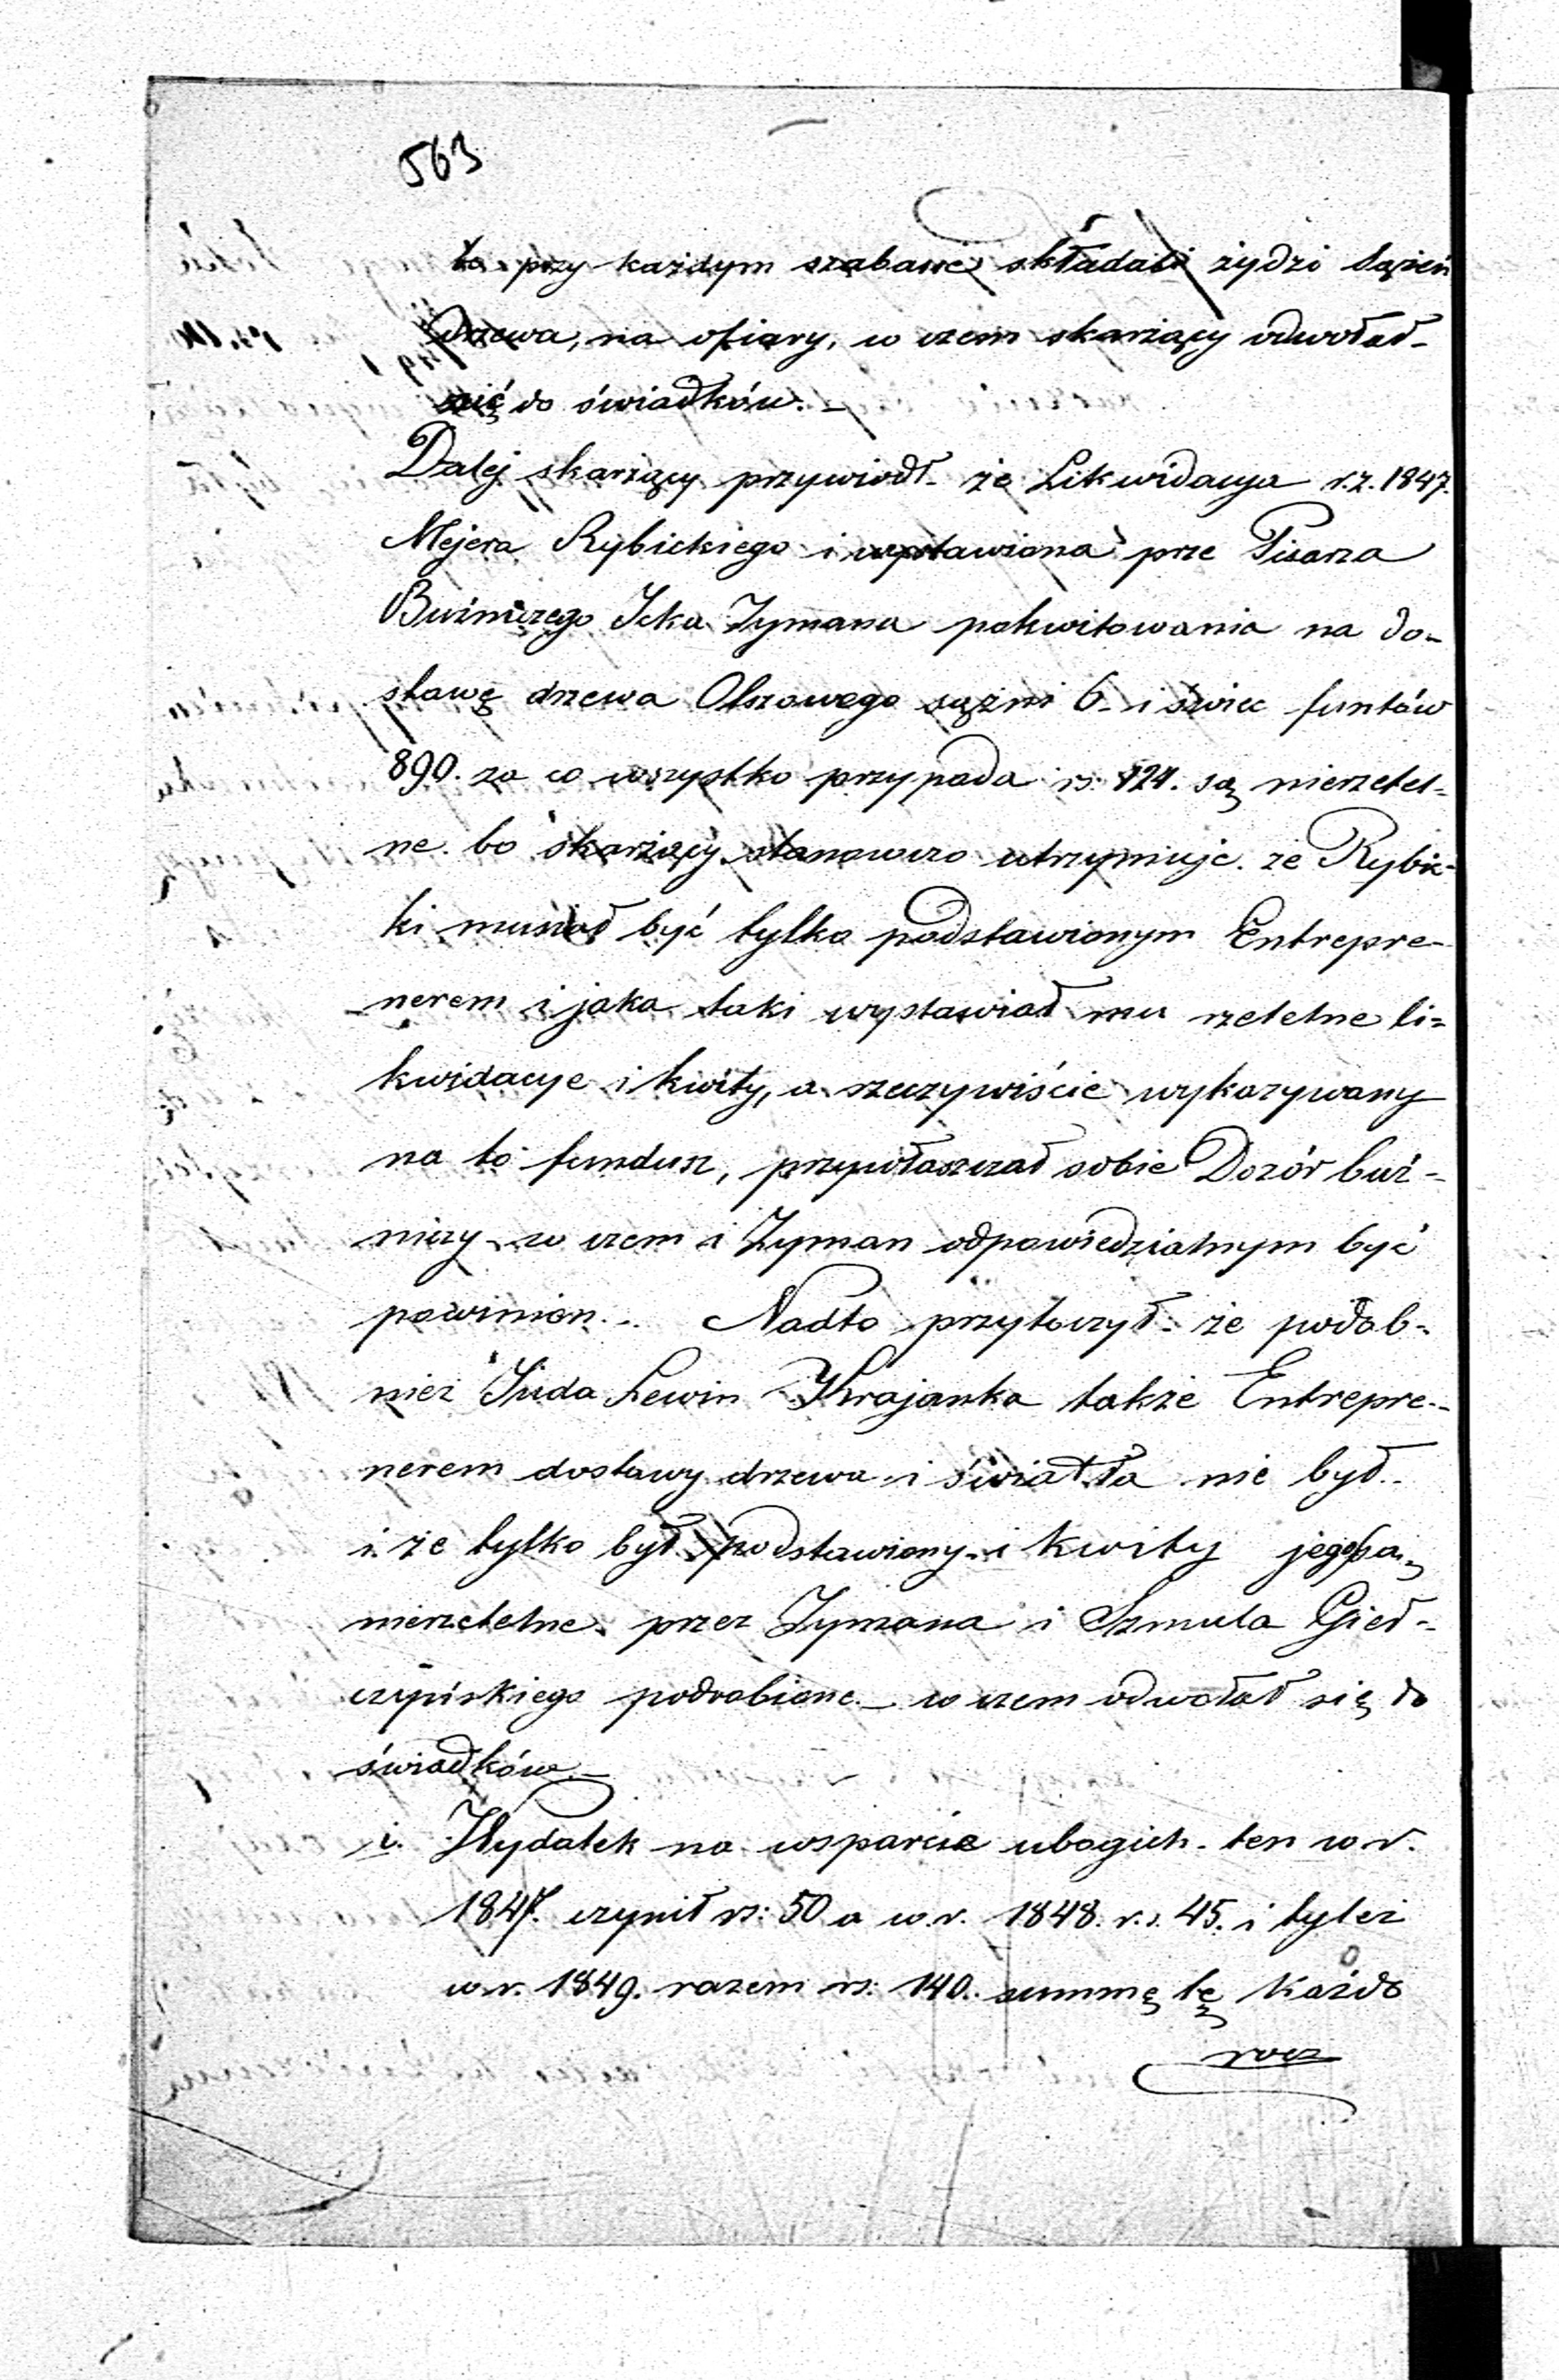 563
to przy każdym szabasie składali żydzi sążeń
drzewa, na ofiary, w czem skarżący odwołał
się do świadków. –
Dalej skarżący przywiódł – że Likwidacya r. z. 1847.
Mejera Rybickiego i wystawiona prze Pisarza
Buźniczego Icka Zymana pokwitowania na do-
stawę drzewa Olszowego sążni 6 – i świec funtów
890. za co wszystko przypada rs: 124. są nierzetel-
ne. bo skarżący stanowczo utrzymuje. że Rybic-
ki musiał być tylko podstawionym Entrepre-
nerem i jako taki wystawiał mu rzetelne li-
kwidacye i kwity, a rzeczywiście wykazywany
na to fundusz, przywłaszczał sobie Dozór buź-
niczy – w czem i Zyman odpowiedzialnym być
powinien. – Nadto przytoczył – że podob-
nież Juda Lewin Krajanka także Entrepre-
nerem dostawy drzewa i światła nie był –
i że tylko był podstawiony – i kwity jego są
nierzetelne przez Zymana i Szmula Gieł-
czyńskiego podrobione. – w czem odwołał się do
świadków. –
i. Wydatek na wsparcie ubogich – ten w r.
1847. czynił rs: 50 a w r. 1848. r. s. 45. i tyleż
w r. 1849. razem rs: 140. summę tę każdo
rocz